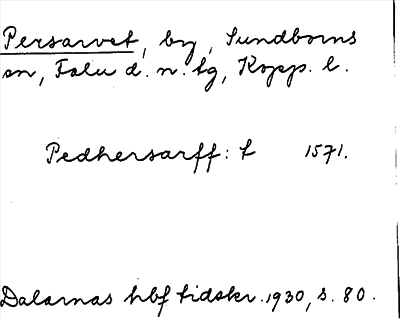 Persarvet, by, Sundborns
sn, Falu d. n. tg, Kopp. l.
Pedhersarff: t 1571.
Dalarnas hbf tidskr. 1930, s. 80.